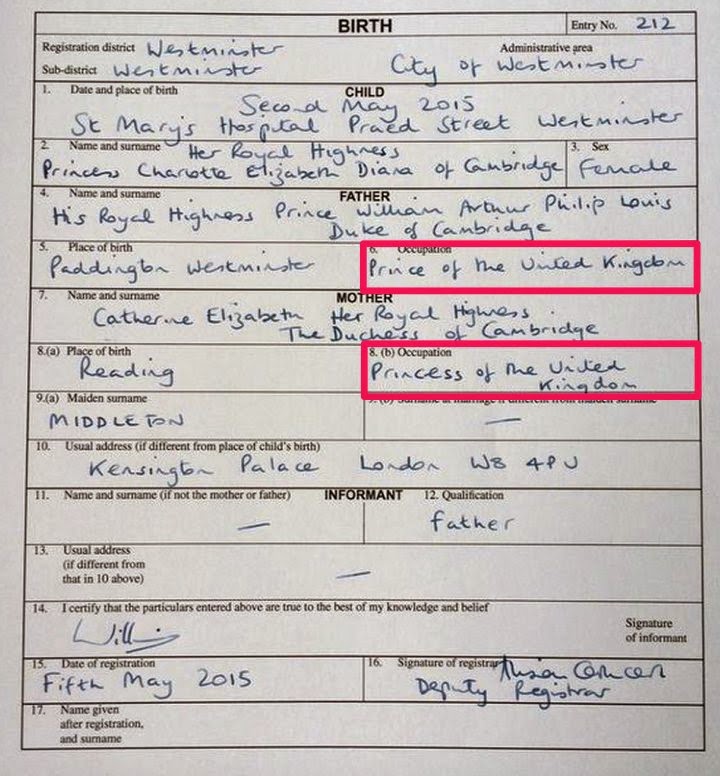 BIRTH
Entry No. 212
Registration district Westminster
Administrative area
Sub-district Westminster
City of Westminster
1. Date and place of birth
CHILD
Second May 2015
St Mary's Hospital Praed Street Westminster
2. Name and surname Her Royal Highness
3. Sex
Princess Charlotte Elizabeth Diana of Cambridge
Female
4. Name and surname
FATHER
His Royal Highness Prince William Arthur Philip Louis
Duke of Cambridge
5. Place of birth
6. Occupation
Paddington Westminster
Prince of the United Kingdom
7. Name and surname
MOTHER
Catherine Elizabeth Her Royal Highness
The Duchess of Cambridge
8.(a) Place of birth
8. (b) Occupation
Reading
Princess of the United
Kingdom
9.(a) Maiden surname
9.(b) Surname at marriage if different from maiden surname
MIDDLETON
—
10. Usual address (if different from place of child's birth)
Kensington Palace London W8 4PU
11. Name and surname (if not the mother or father)
INFORMANT
12. Qualification
—
Father
13. Usual address
(if different from
that in 10 above)
—
14. I certify that the particulars entered above are true to the best of my knowledge and belief
Signature
of informant
15. Date of registration
16. Signature of registrar
Fifth May 2015
Deputy Registrar
17. Name given
after registration,
and surname